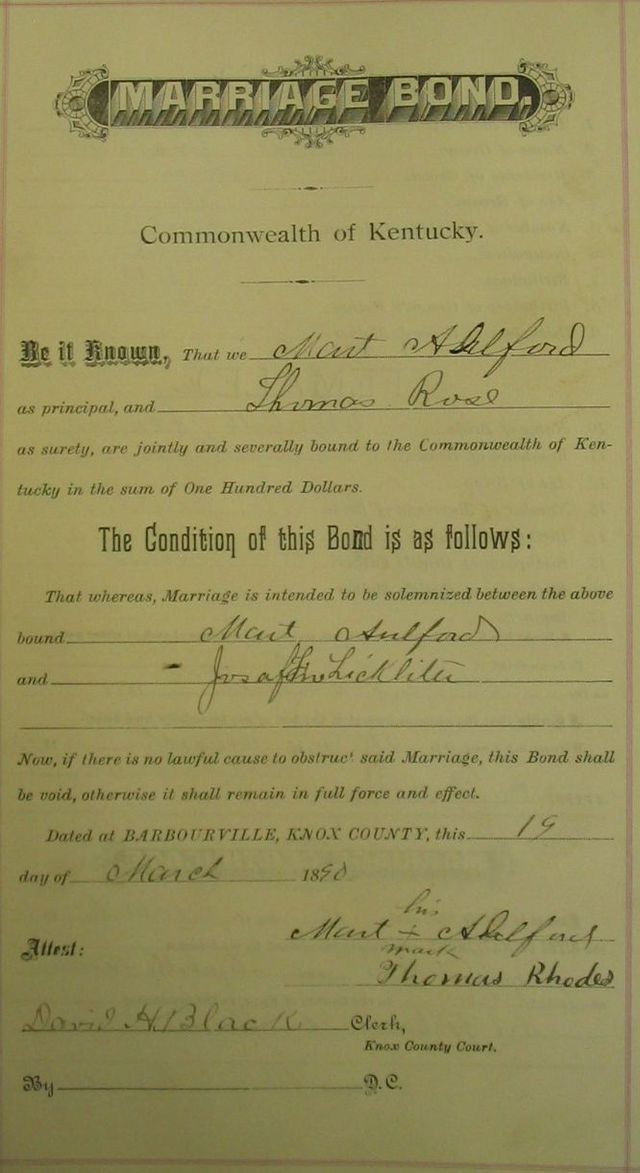 MARRIAGE BOND.
Commonwealth of Kentucky.
Be it Known, That we Mart
as principal, and Thomas Rose
as surety, are jointly and severally bound to the Commonwealth of Ken-
tucky in the sum of One Hundred Dollars.
The Condition of this Bond is as follows:
That whereas, Marriage is intended to be solemnized between the above
bound Mart
and
Now, if there is no lawful cause to obstruct said Marriage, this Bond shall
be void, otherwise it shall remain in full force and effect.
Dated at BARBOURVILLE, KNOX COUNTY, this 19
day of March 1890
his
Mart +
Attest: mark
Thomas Rhodes
David H. Black Clerk,
Knox County Court.
By D.C.